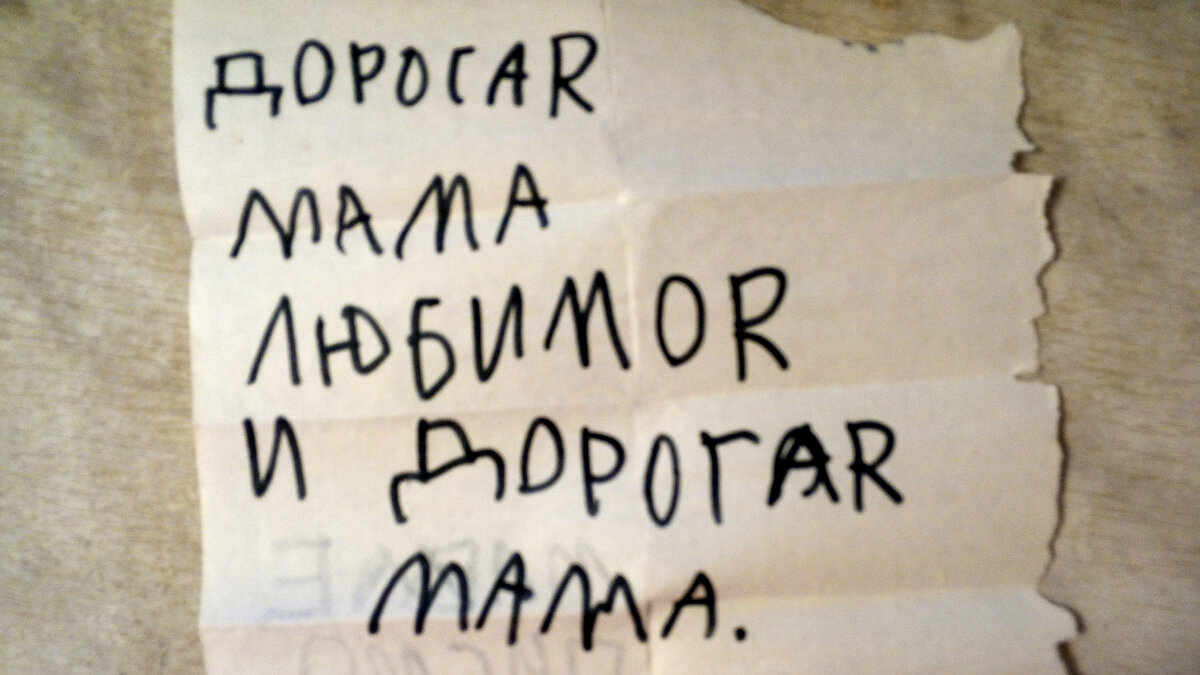 ДОРОГАR
МАМА
ЛЮБИМОR
И ДОРОГАR
МАМА.